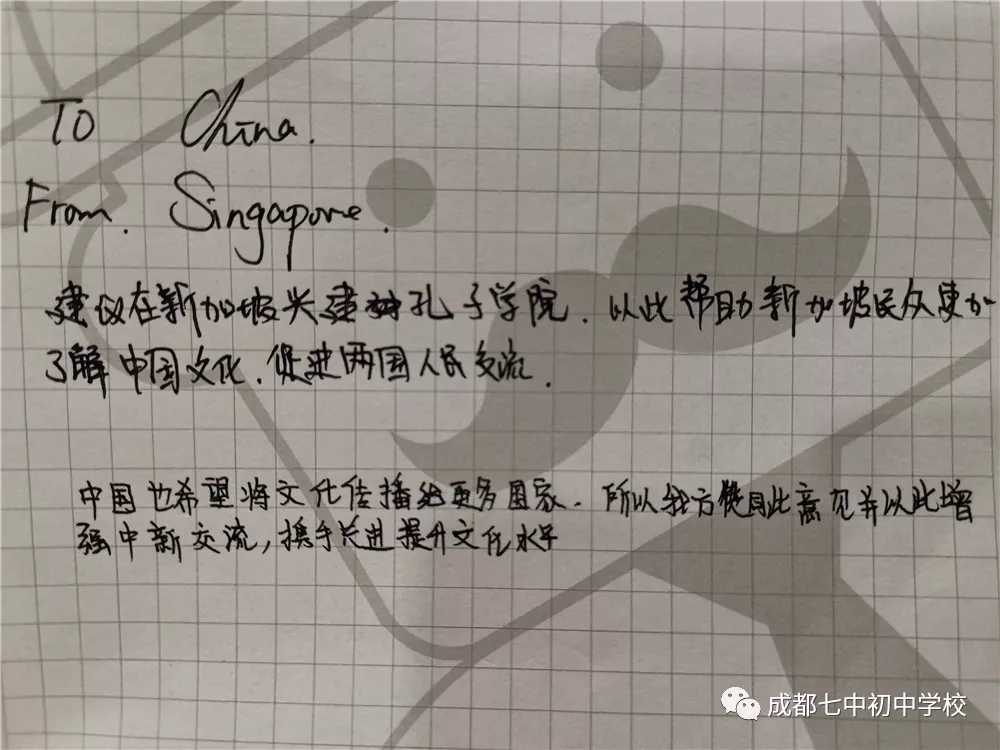 To China.
From. Singapore.
建议在新加坡兴建孔子学院. 以此帮助新加坡民众更加
了解中国文化, 促进两国人民交流.
中国也希望将文化传播给更多国家. 所以我方使用此意见并以此增
强中新交流, 携手共进提升文化水平
成都七中初中学校